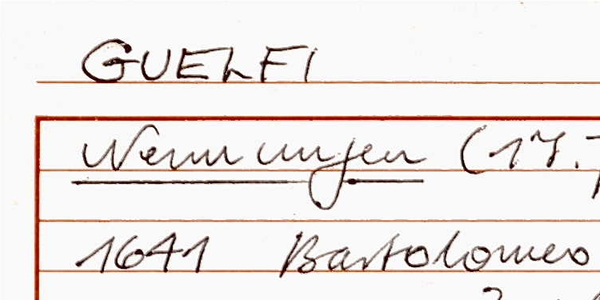 GUELFI
Nennungen (17.
1641 Bartolomeo